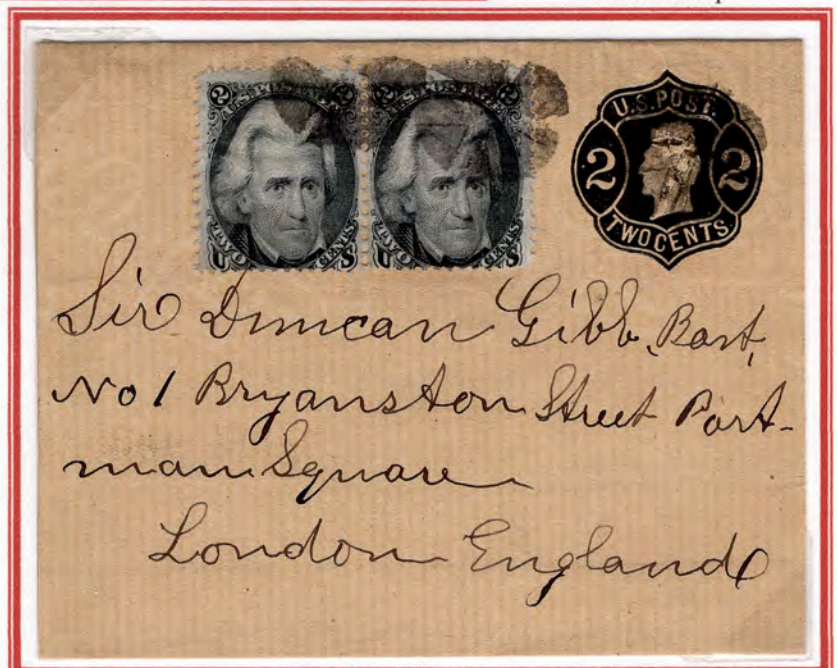 2 U.S. POSTAGE 2
TWO CENTS
U S
2 U.S. POSTAGE 2
TWO CENTS
U S
U.S. POST.
2 2
TWO CENTS.
Sir Duncan Gibb, Bart,
No 1 Bryanston Street Port-
man Square
London England